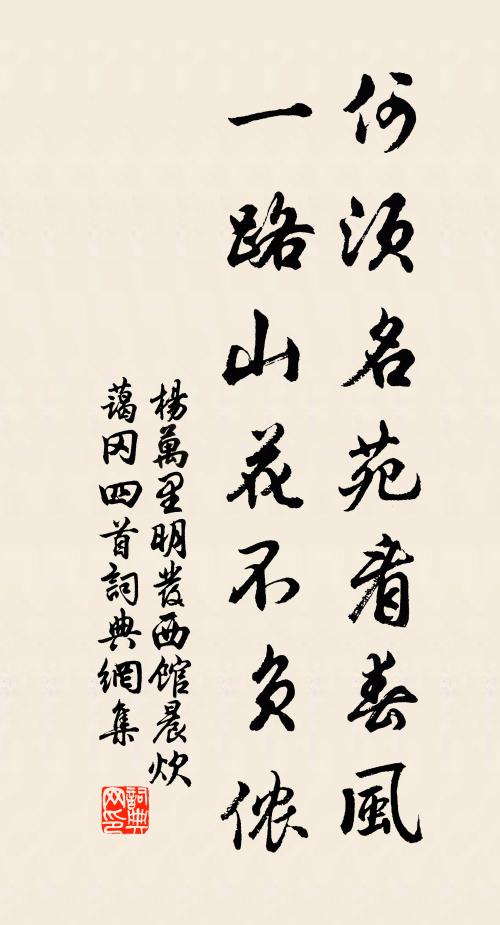 何須名苑看春風
一路山花不负儂
楊萬里明發西館晨炊
藹冈四首詞典網集
詞典网印